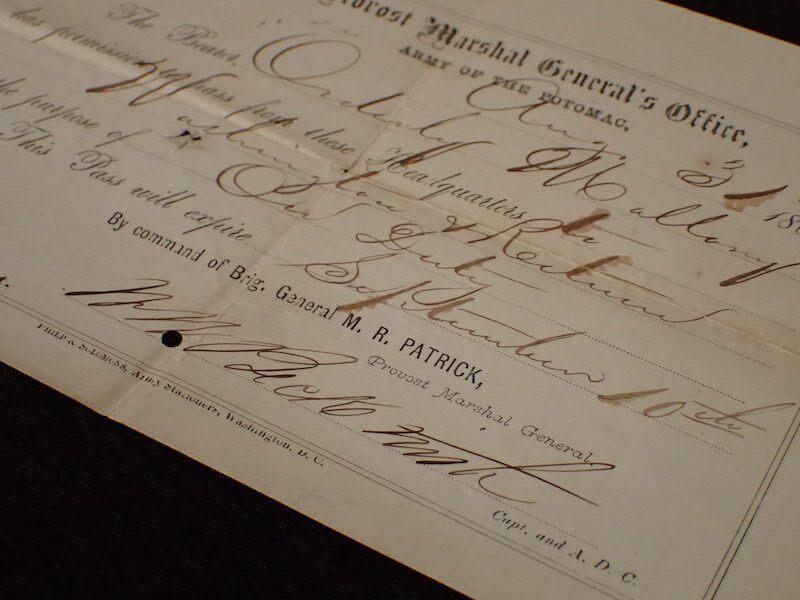 Provost Marshal General's Office,
ARMY OF THE POTOMAC,
Aug. 31st 186
The Bearer, Orderly Mallory
has permission to pass from these Headquarters to
Washington & Return
the purpose of On Duty
This Pass will expire September 10th
By command of Brig. General M. R. PATRICK,
Provost Marshal General.
Capt. and A. D. C.
PHILP & SOLOMONS, Army Stationers, Washington, D. C.